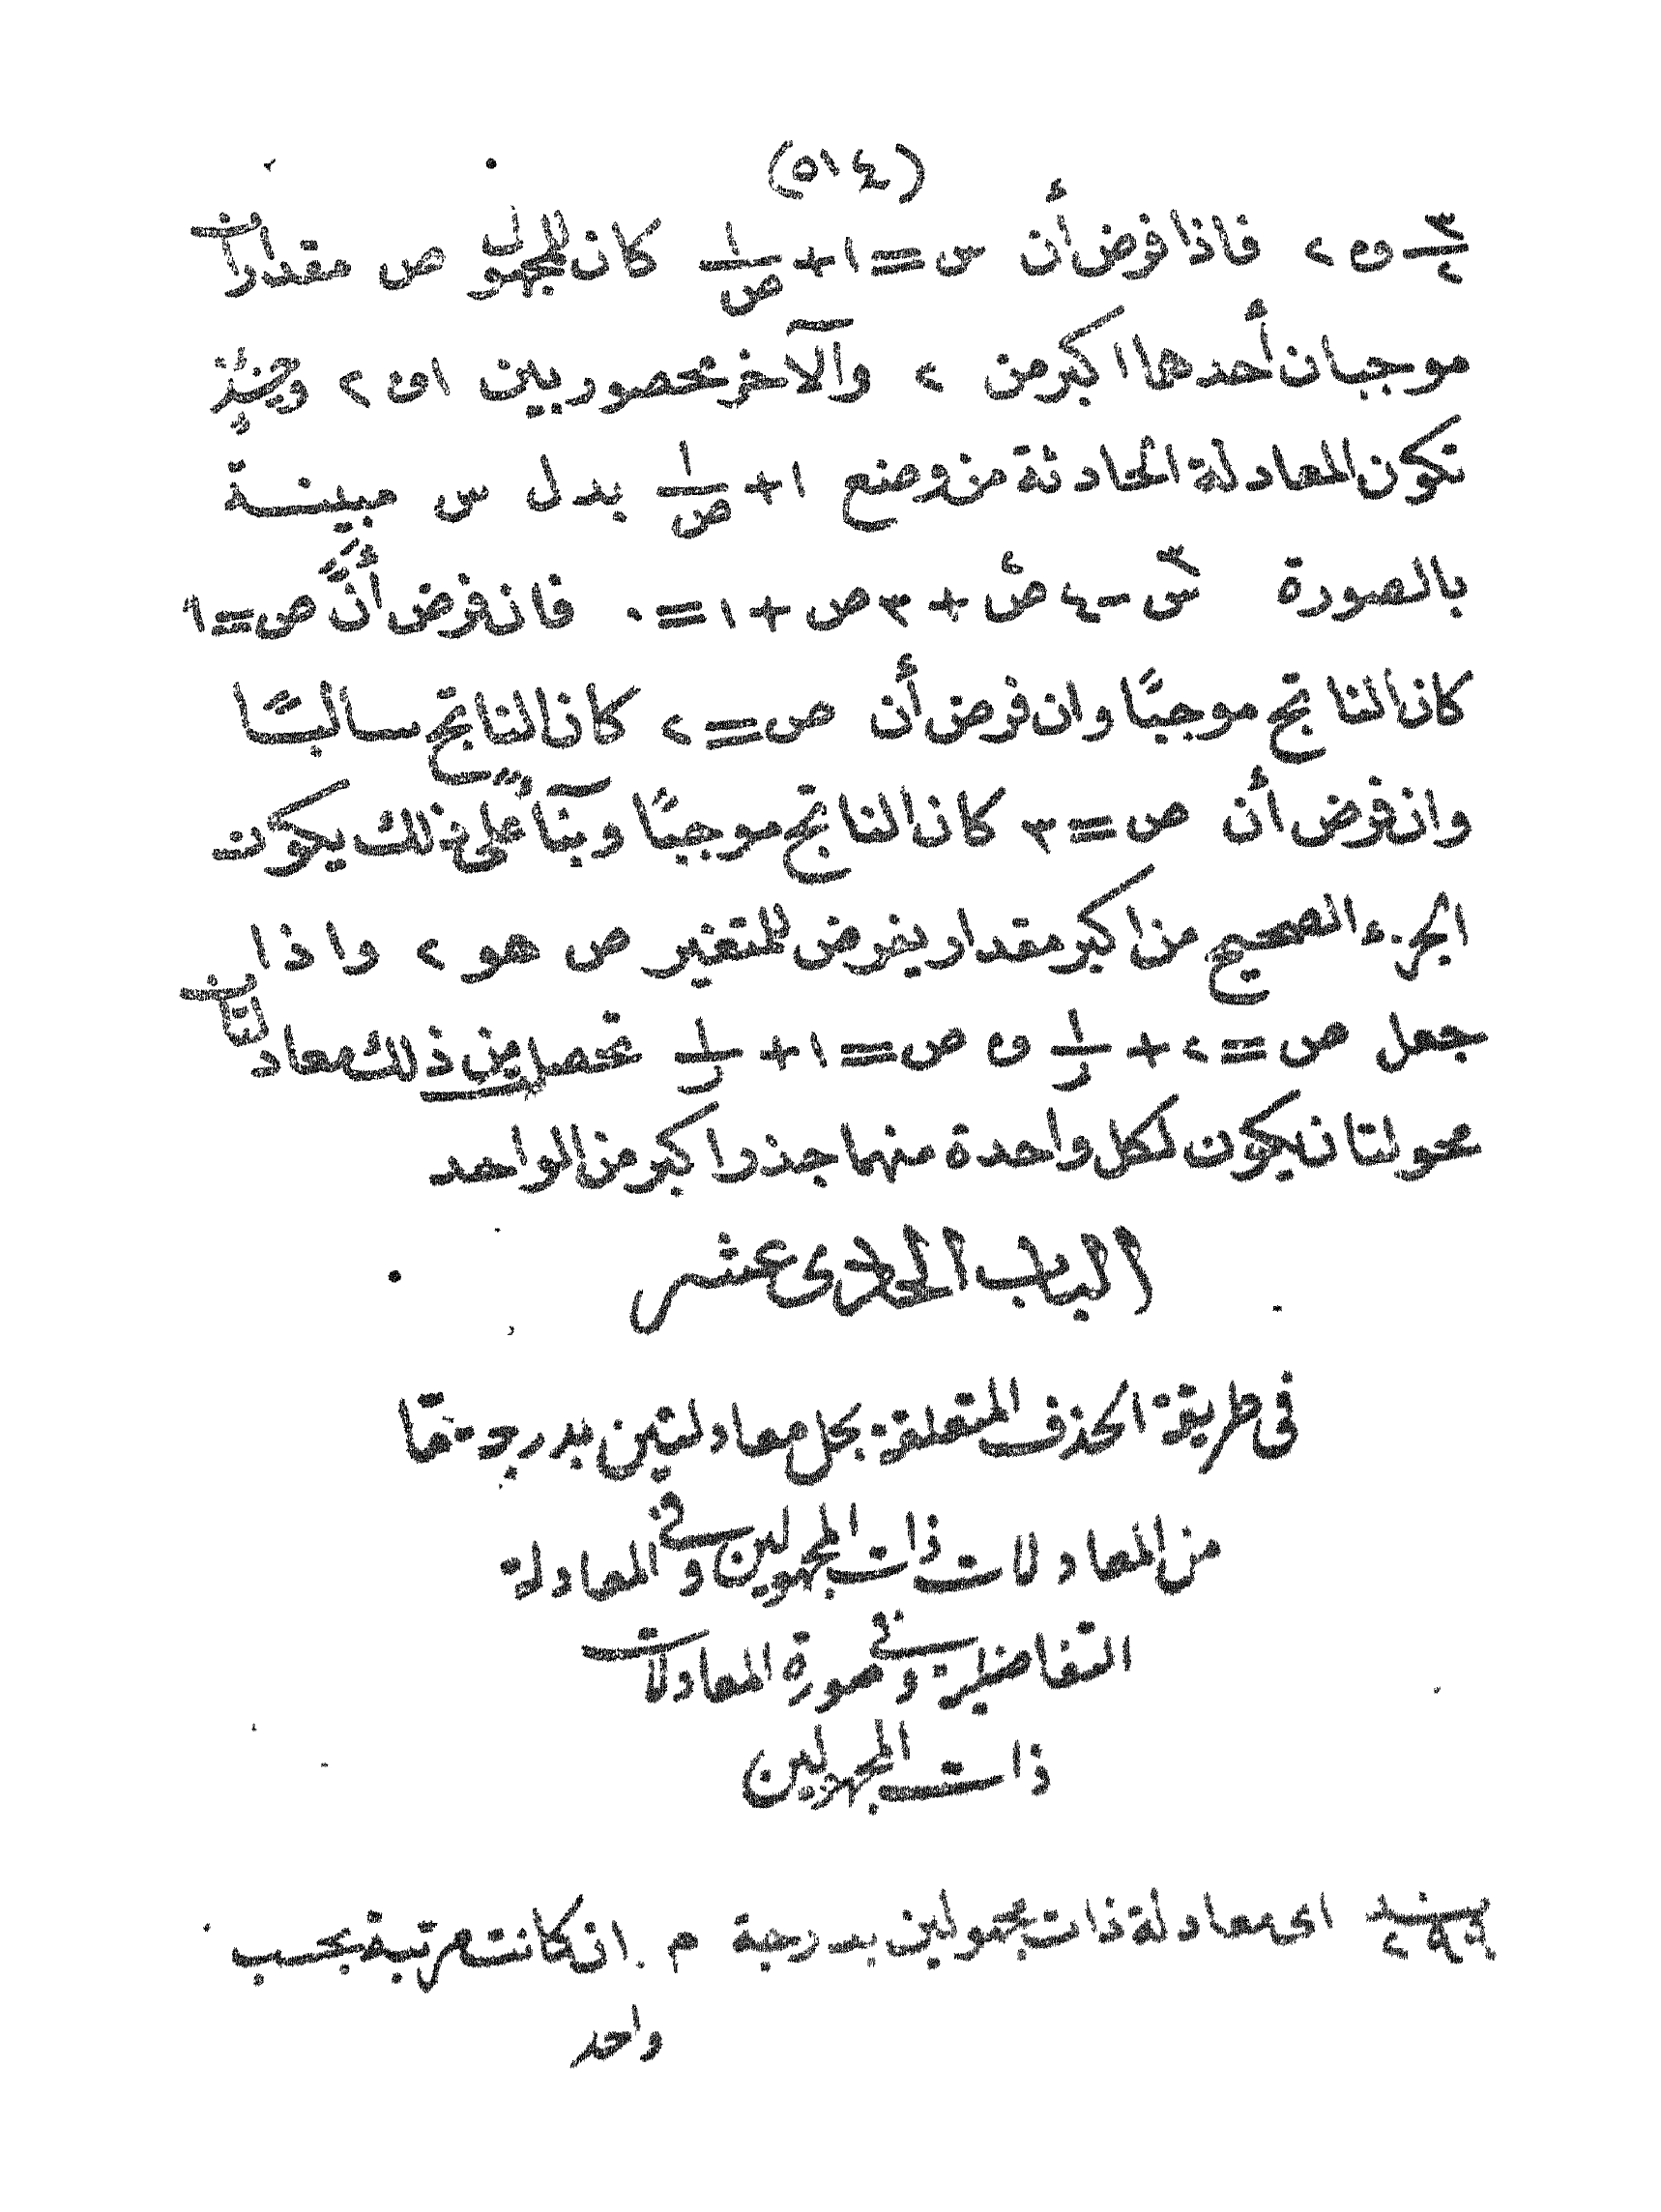 (٥١٤)
٣/٢ و ٢ فاذا فرض أن س = ١ + ١/ص كان للمجهول ص مقداران
موجبان أحدهما اكبر من ٢ والآخر محصور بين ١ و ٢ وحينئذٍ
تكون المعادلة الحادثة من وضع ١ + ١/ص بدل س مبينة
بالصورة س٣ - ٤ص٢ + ٣ص + ١ = ٠ فان فرض أنَّ ص = ١
كان الناتج موجبًا وان فرض أن ص = ٢ كان الناتج سالبًا
وان فرض أن ص = ٣ كان الناتج موجبًا وبنآءً على ذلك يكون
الجزء الصحيح من اكبر مقدار يفرض للمتغير ص هو ٢ واذا
جعل ص = ٢ + ١/ر و ص = ١ + ١/ر تحصل من ذلك معادلتان
محولتان يكون لكل واحدة منهما جذر اكبر من الواحد
الباب الحادى عشر
فى طريقة الحذف المتعلقة بحل معادلتين بدرجة مّا
من المعادلات ذات المجهولين وفى المعادلة
التفاضلية وفى صورة المعادلات
ذات المجهولين
بند ٢٩٩ اى معادلة ذات مجهولين بدرجة م ان كانت مرتبة بحسب
واحد